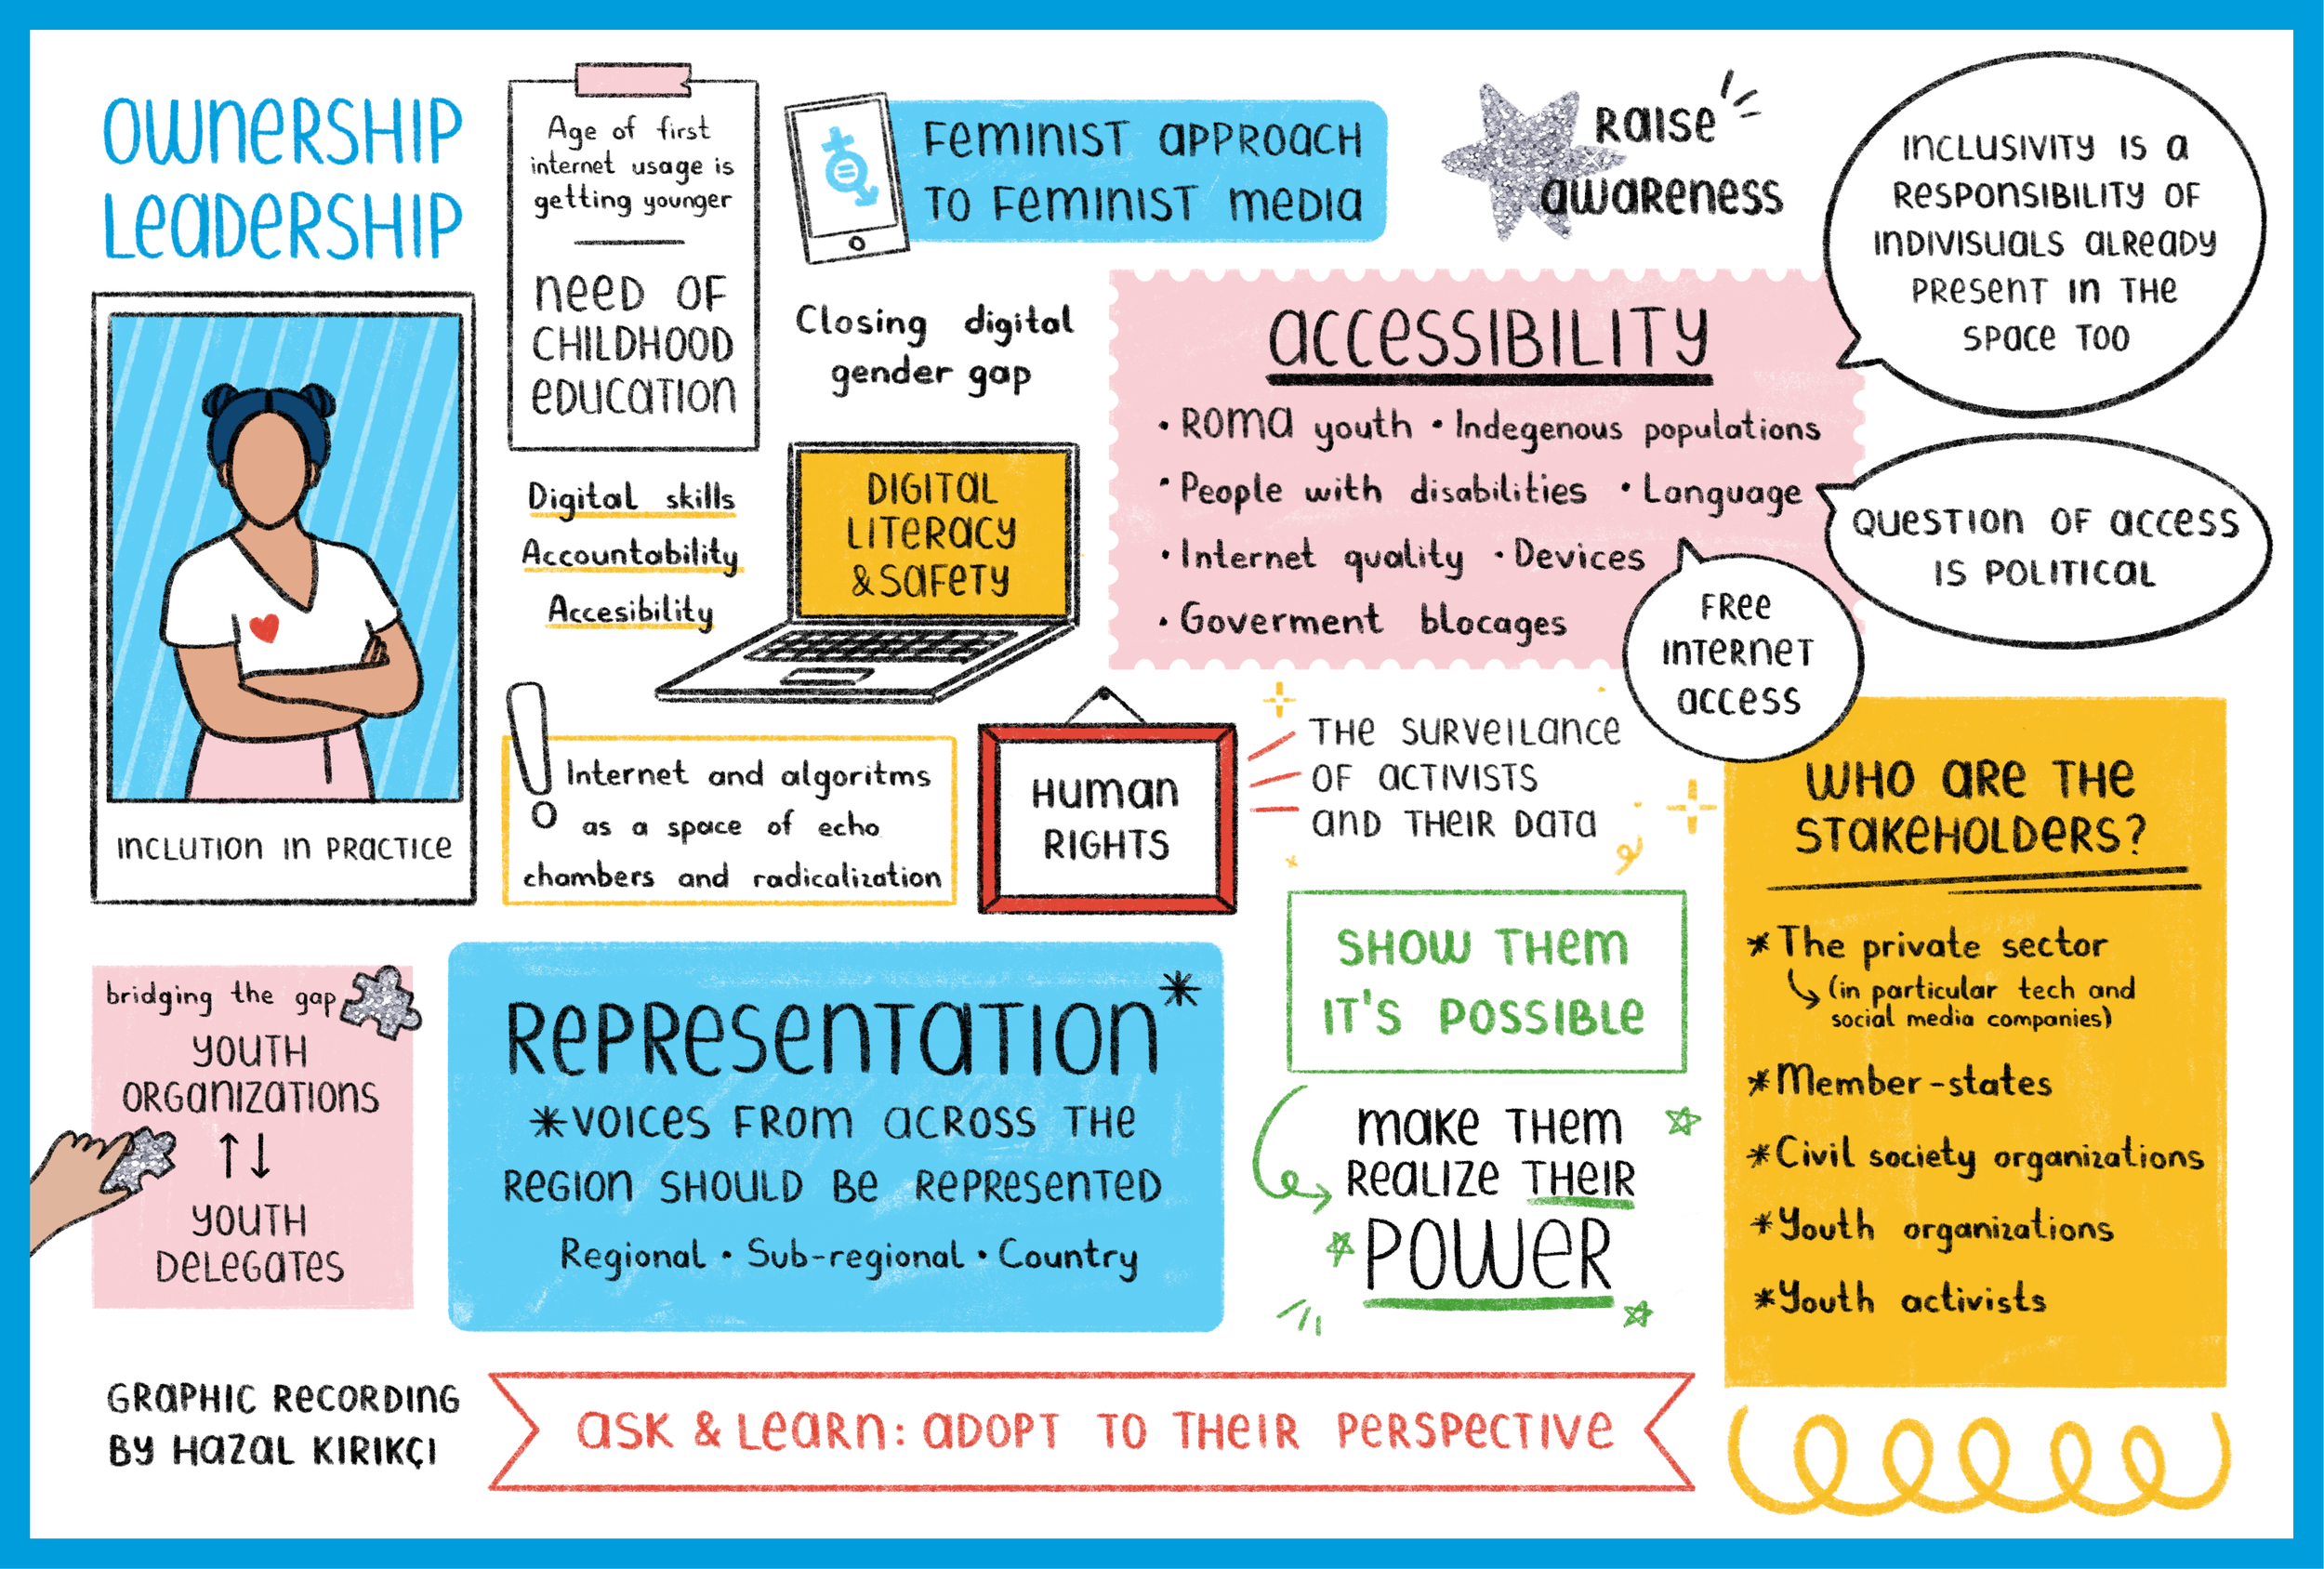 OWNERSHIP
LEADERSHIP
INCLUTION IN PRACTICE
Age of first
internet usage is
getting younger
NEED OF
CHILDHOOD
EDUCATION
FEMINIST APPROACH
TO FEMINIST MEDIA
RAISE
AWARENESS
INCLUSIVITY IS A
RESPONSIBILITY OF
INDIVISUALS ALREADY
PRESENT IN THE
SPACE TOO
Closing digital
gender gap
Digital skills
Accountability
Accesibility
DIGITAL
LITERACY
& SAFETY
ACCESSIBILITY
• ROMA youth • Indegenous populations
• People with disabilities • Language
• Internet quality • Devices
• Goverment blocages
QUESTION OF ACCESS
IS POLITICAL
FREE
INTERNET
ACCESS
! Internet and algoritms
as a space of echo
chambers and radicalization
HUMAN
RIGHTS
THE SURVEILANCE
OF ACTIVISTS
AND THEIR DATA
WHO ARE THE
STAKEHOLDERS?
* The private sector
(in particular tech and
social media companies)
* Member-states
* Civil society organizations
* Youth organizations
* Youth activists
bridging the gap
YOUTH
ORGANIZATIONS
↑↓
YOUTH
DELEGATES
REPRESENTATION*
*VOICES FROM ACROSS THE
REGION SHOULD BE REPRESENTED
Regional • Sub-regional • Country
SHOW THEM
IT'S POSSIBLE
MAKE THEM
REALIZE THEIR
POWER
GRAPHIC RECORDING
BY HAZAL KIRIKÇI
ASK & LEARN: ADOPT TO THEIR PERSPECTIVE